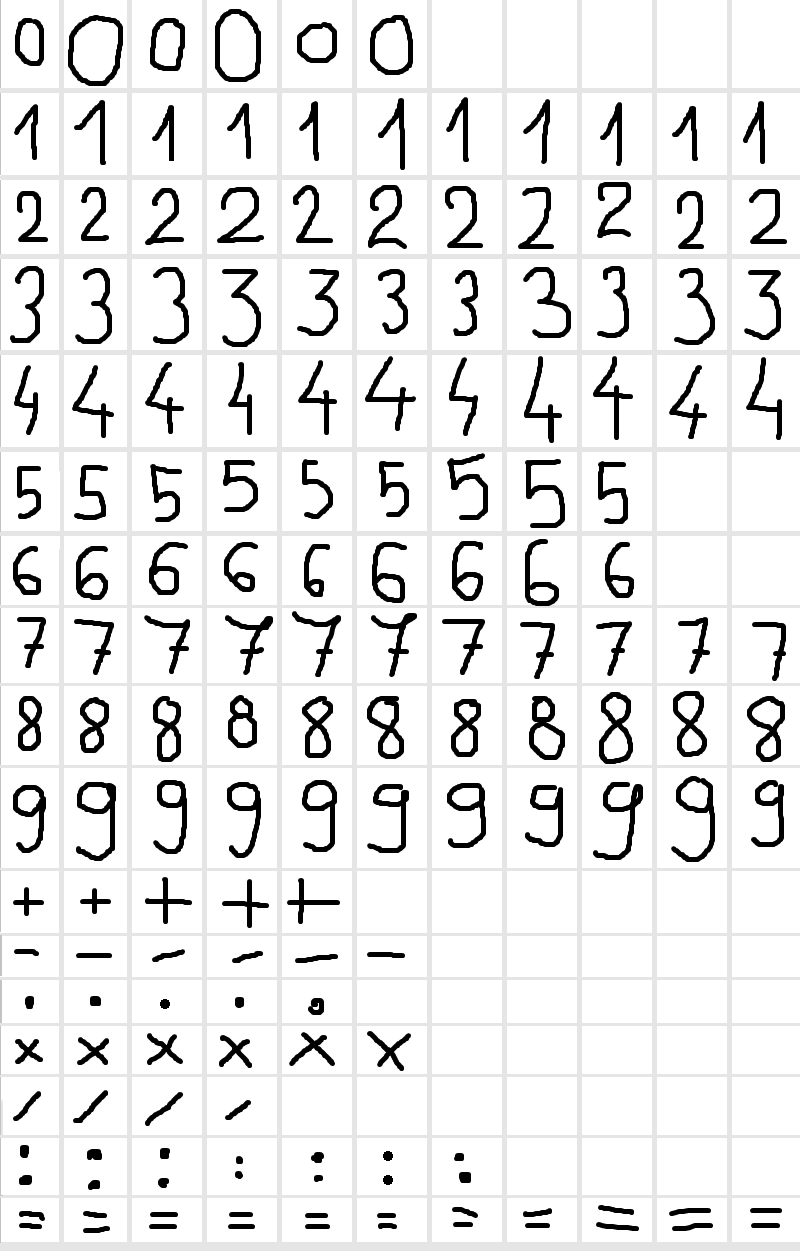 0 0 0 0 0 0
1 1 1 1 1 1 1 1 1 1 1
2 2 2 2 2 2 2 2 2 2 2
3 3 3 3 3 3 3 3 3 3 3
4 4 4 4 4 4 4 4 4 4 4
5 5 5 5 5 5 5 5 5
6 6 6 6 6 6 6 6 6
7 7 7 7 7 7 7 7 7 7 7
8 8 8 8 8 8 8 8 8 8 8
9 9 9 9 9 9 9 9 9 9 9
+ + + + +
- - - - - -
. . . . .
× × × × × ×
/ / / /
: : : : : : :
= = = = = = = = = = =